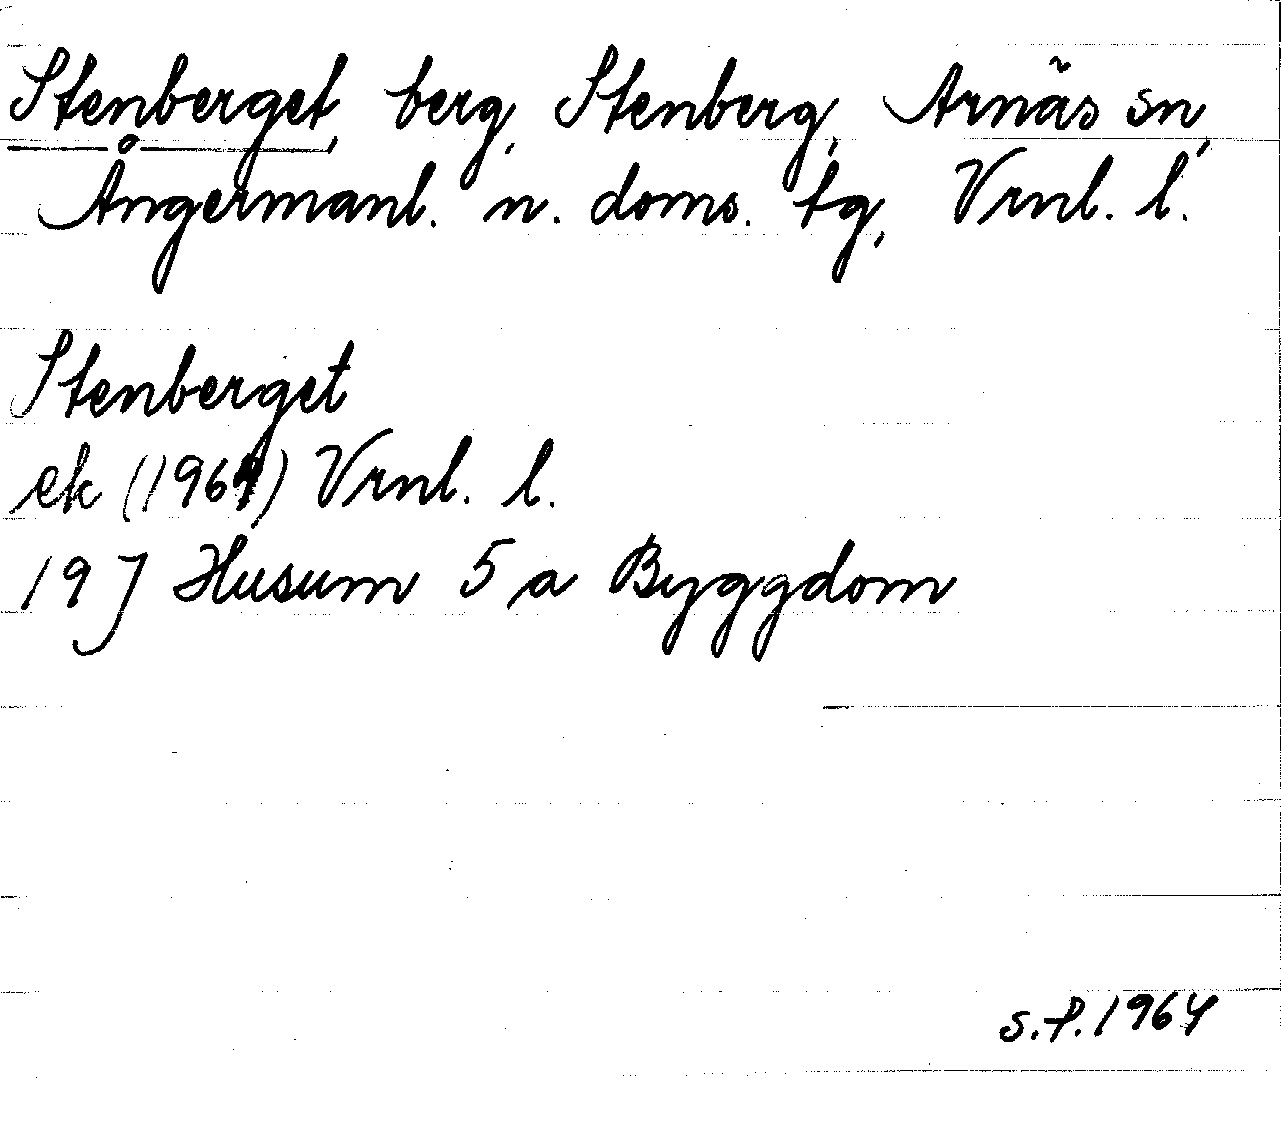 Stenberget, berg, Stenberg, Arnäs sn,
Ångermanl. n. doms. tg, Vrnl. l.
Stenberget
ek (1964) Vrnl. l.
19 J Husum 5 a Byggdom
S.P. 1964